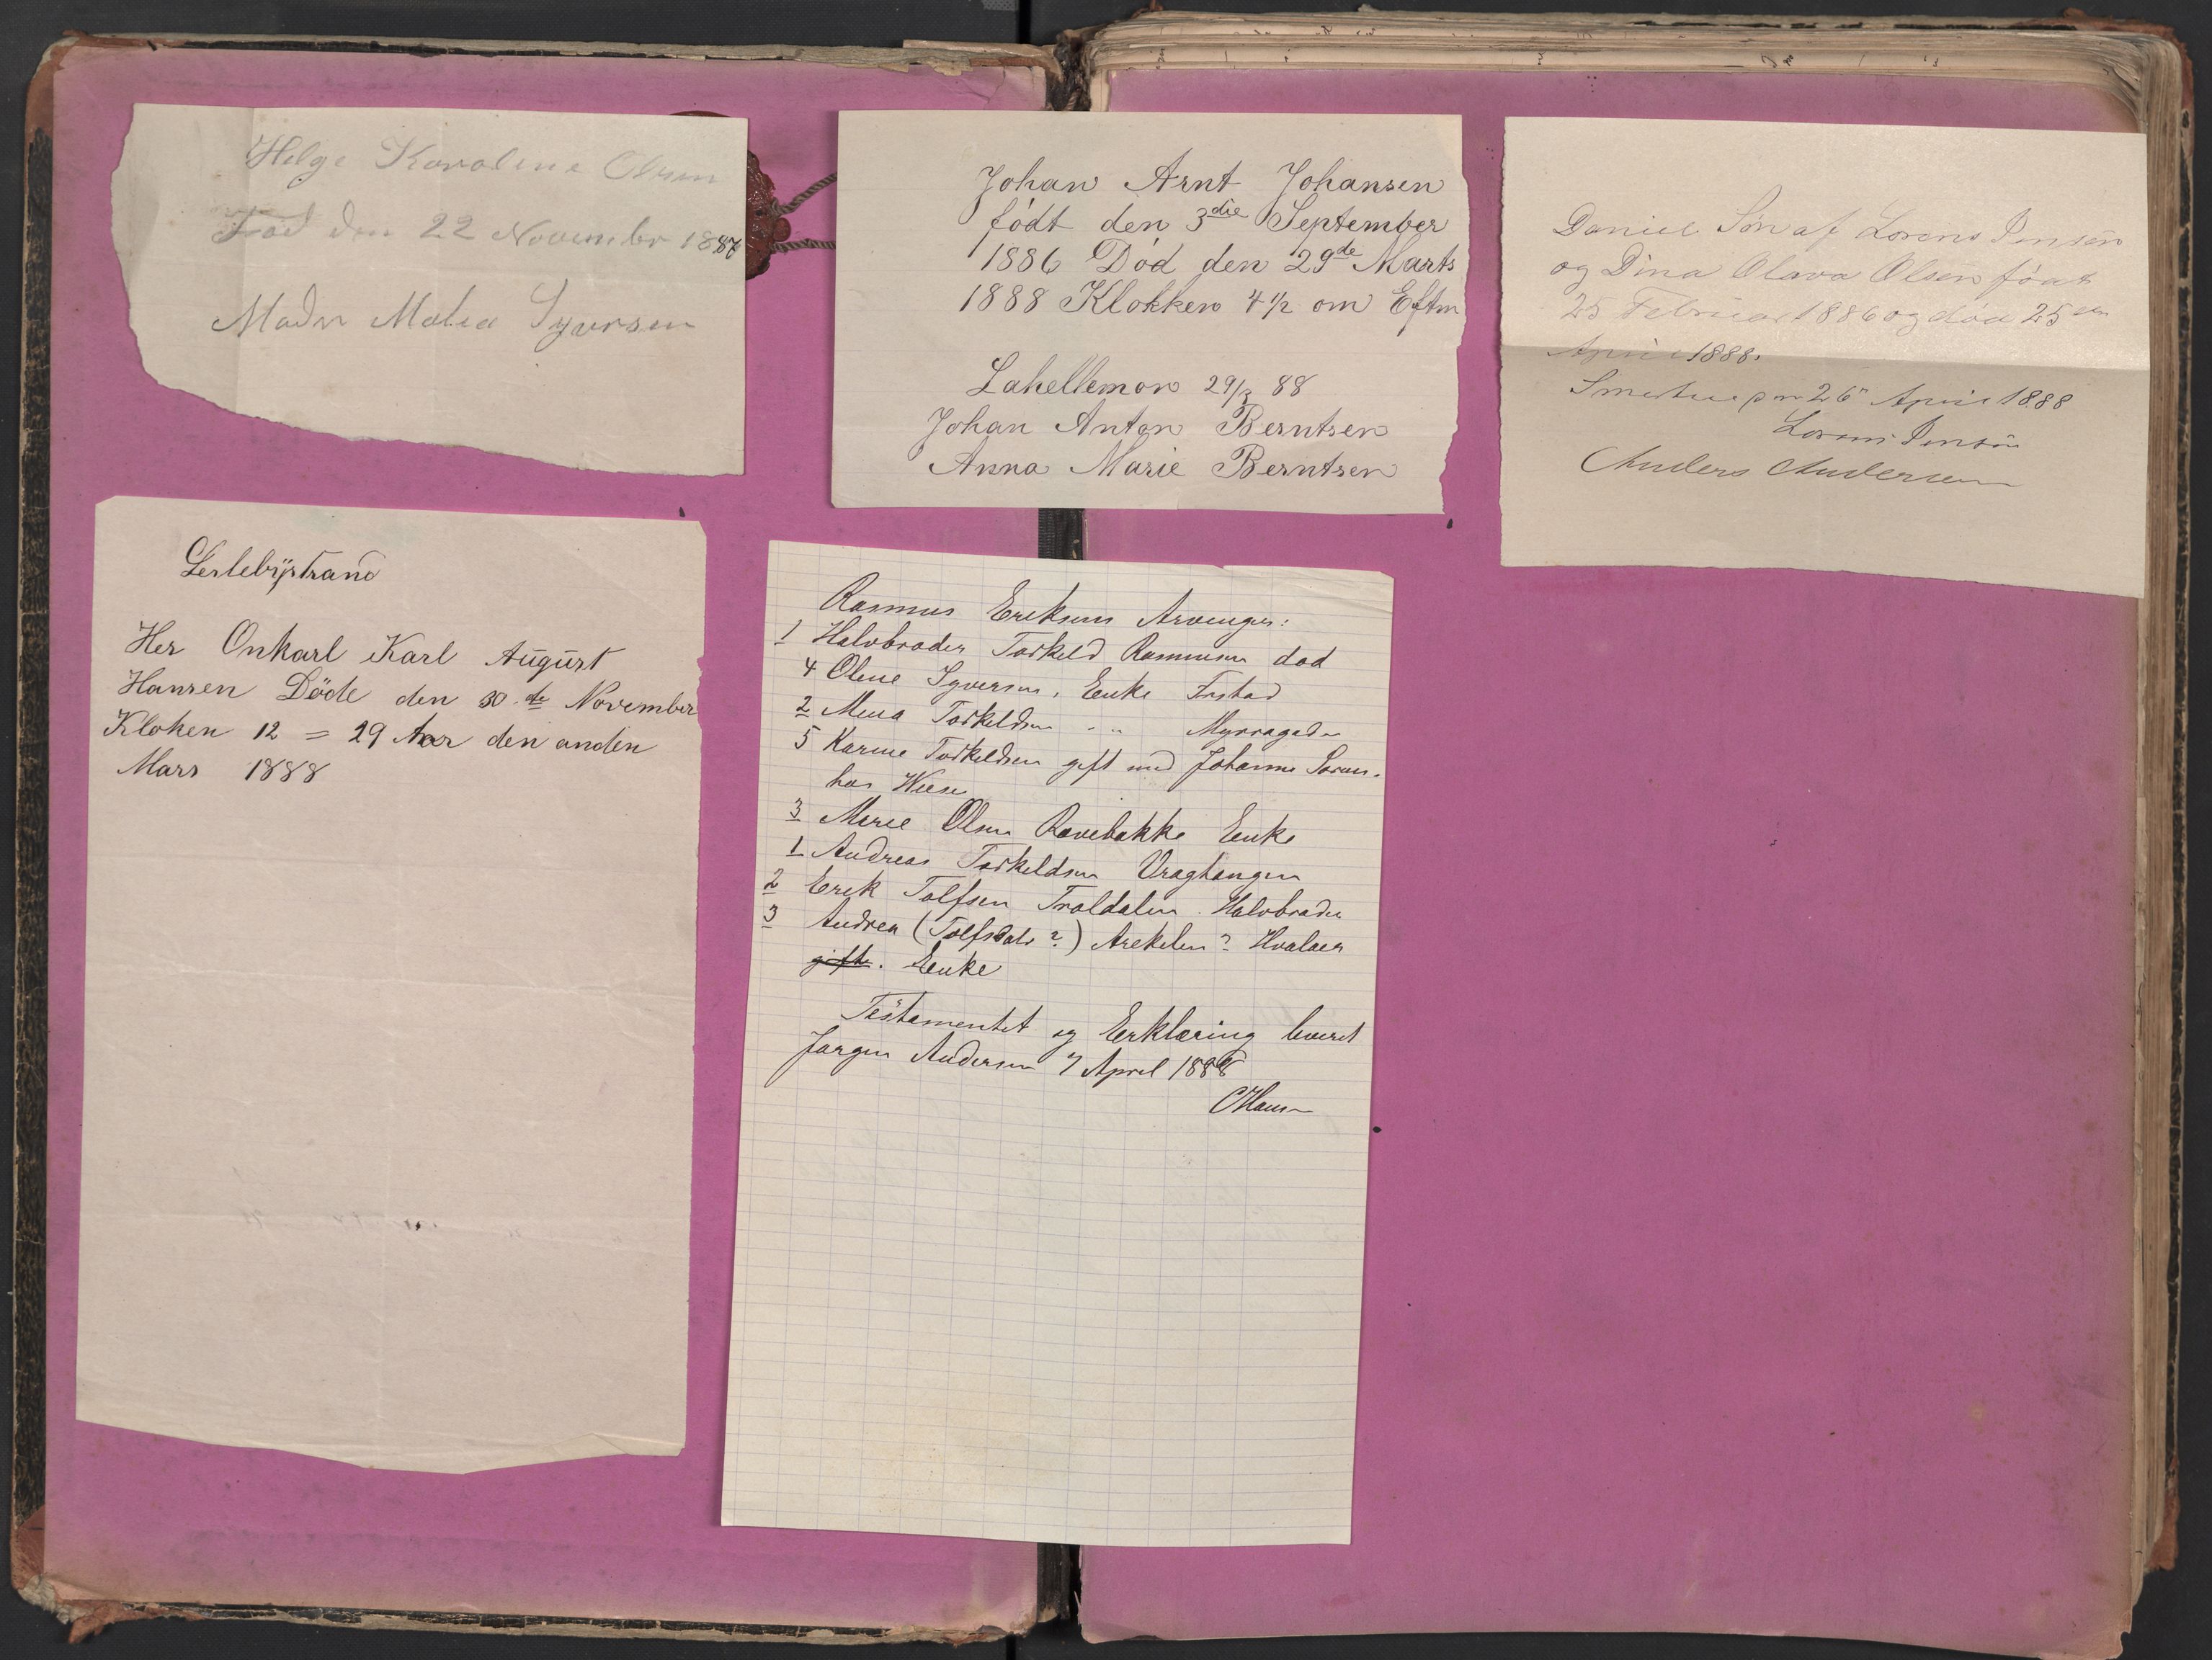 Helge Karoline Olsen
Född den 22 November 1887
Moder Malia Syversen
Johan Arnt Johansen
födt den 3die September
1886 Död den 29de Marts
1888 Klokken 4 1/2 om Eftm
Lahellemon 29/3 88
Johan Anton Berntsen
Anna Marie Berntsen
Daniel Søn af Lorens Jensen
og Dina Olava Olsen födt
25 Februar 1886 og död 25de
April 1888.
26de April 1888
Lorens Jensen
Anders Andersen
Lerlebystrand
Her Onkarl Karl August
Hansen Döde den 30 de November
Kloken 12 = 29 Aar den anden
Mars 1888
Rasmus Eriksens Arvinger:
1 Halvbroder Torkeld Rasmusen död
4 Oline Syversen, Enke
2 Mina Torkeldsen " " Myrragaden
5 Karine Torkeldsen gift med Johannes Soren.
hos Wiese
3 Marie Olsen Ravebakke Enke
1 Andreas Torkeldsen Vragtangen
2 Erik Tolfsen Troldalen Halvbroder
3 Andrea (Tolfsdatr?) Arekilen? Hvaløer
gift. Enke
Testamentet og Erklæring leveret
Jørgen Andersen 7 April 1888
CHansen